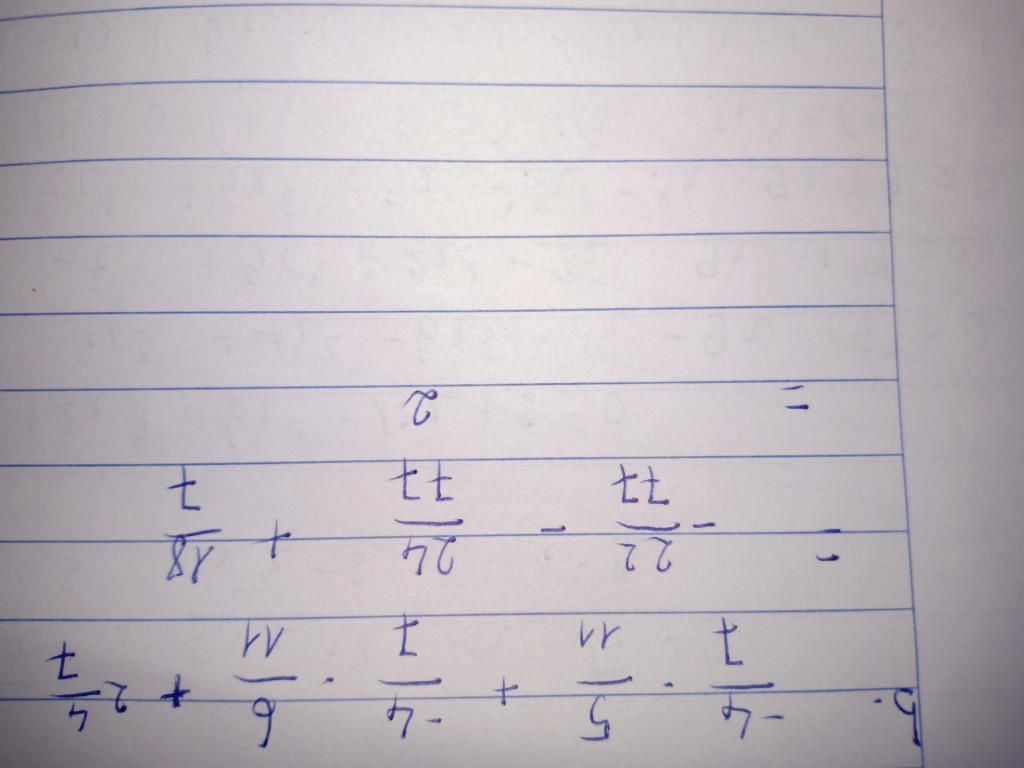 5. -4/7 · 5/11 + -4/7 · 6/11 + 2 4/7
= -22/77 - 24/77 + 18/7
= 2